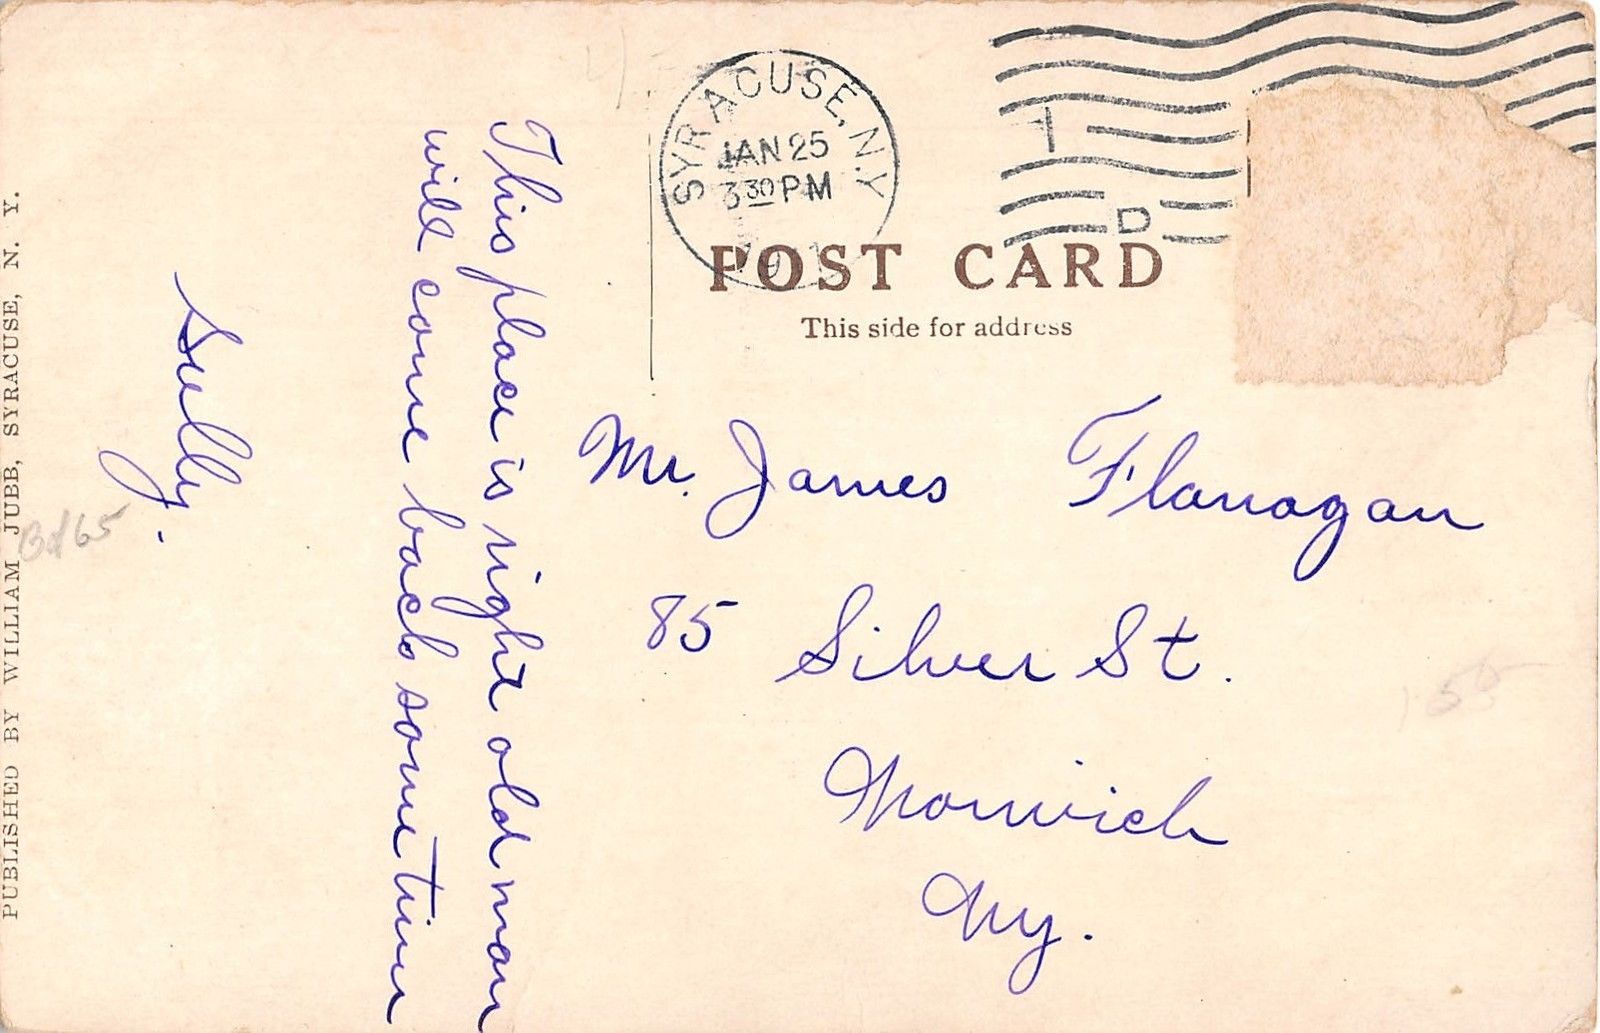 SYRACUSE, N.Y.
JAN 25
3 30 PM
D
POST CARD
This side for address
This place is right old man
will come back some time
Sully.
Mr. James Flanagan
85 Silver St.
Norwich
Ny.
PUBLISHED BY WILLIAM JUBB, SYRACUSE, N. Y.